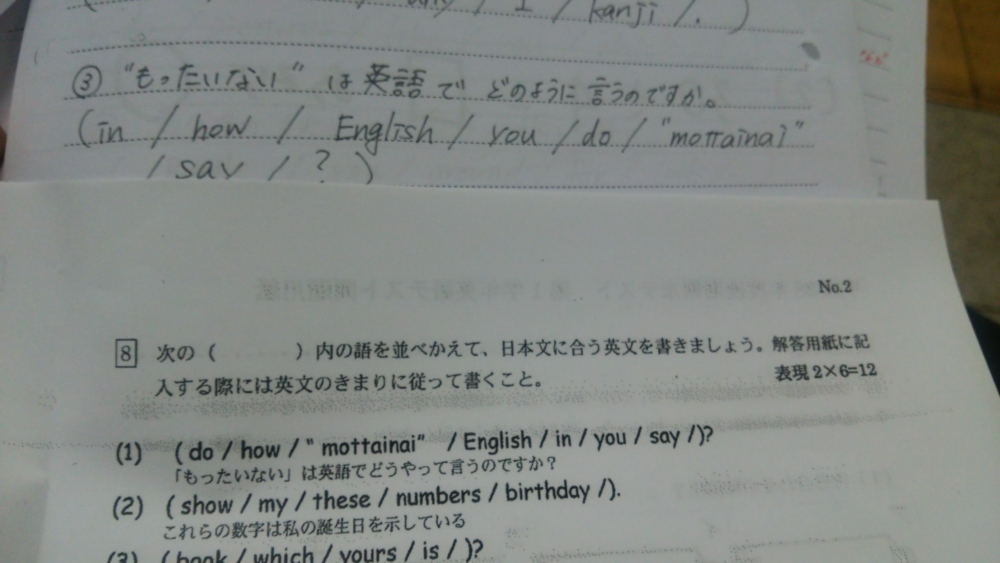 / I / kanji / . )
③ "もったいない" は 英語 で どのように 言うのですか。
(in / how / English / you / do / "mottainai"
/ say / ? )
No.2
8 次の ( ) 内の語を並べかえて、日本文に合う英文を書きましょう。解答用紙に記
入する際には英文のきまりに従って書くこと。 表現 2×6=12
(1) ( do / how / " mottainai" / English / in / you / say /)?
「もったいない」は英語でどうやって言うのですか？
(2) ( show / my / these / numbers / birthday /).
これらの数字は私の誕生日を示している
(3) ( book / which / yours / is / )?